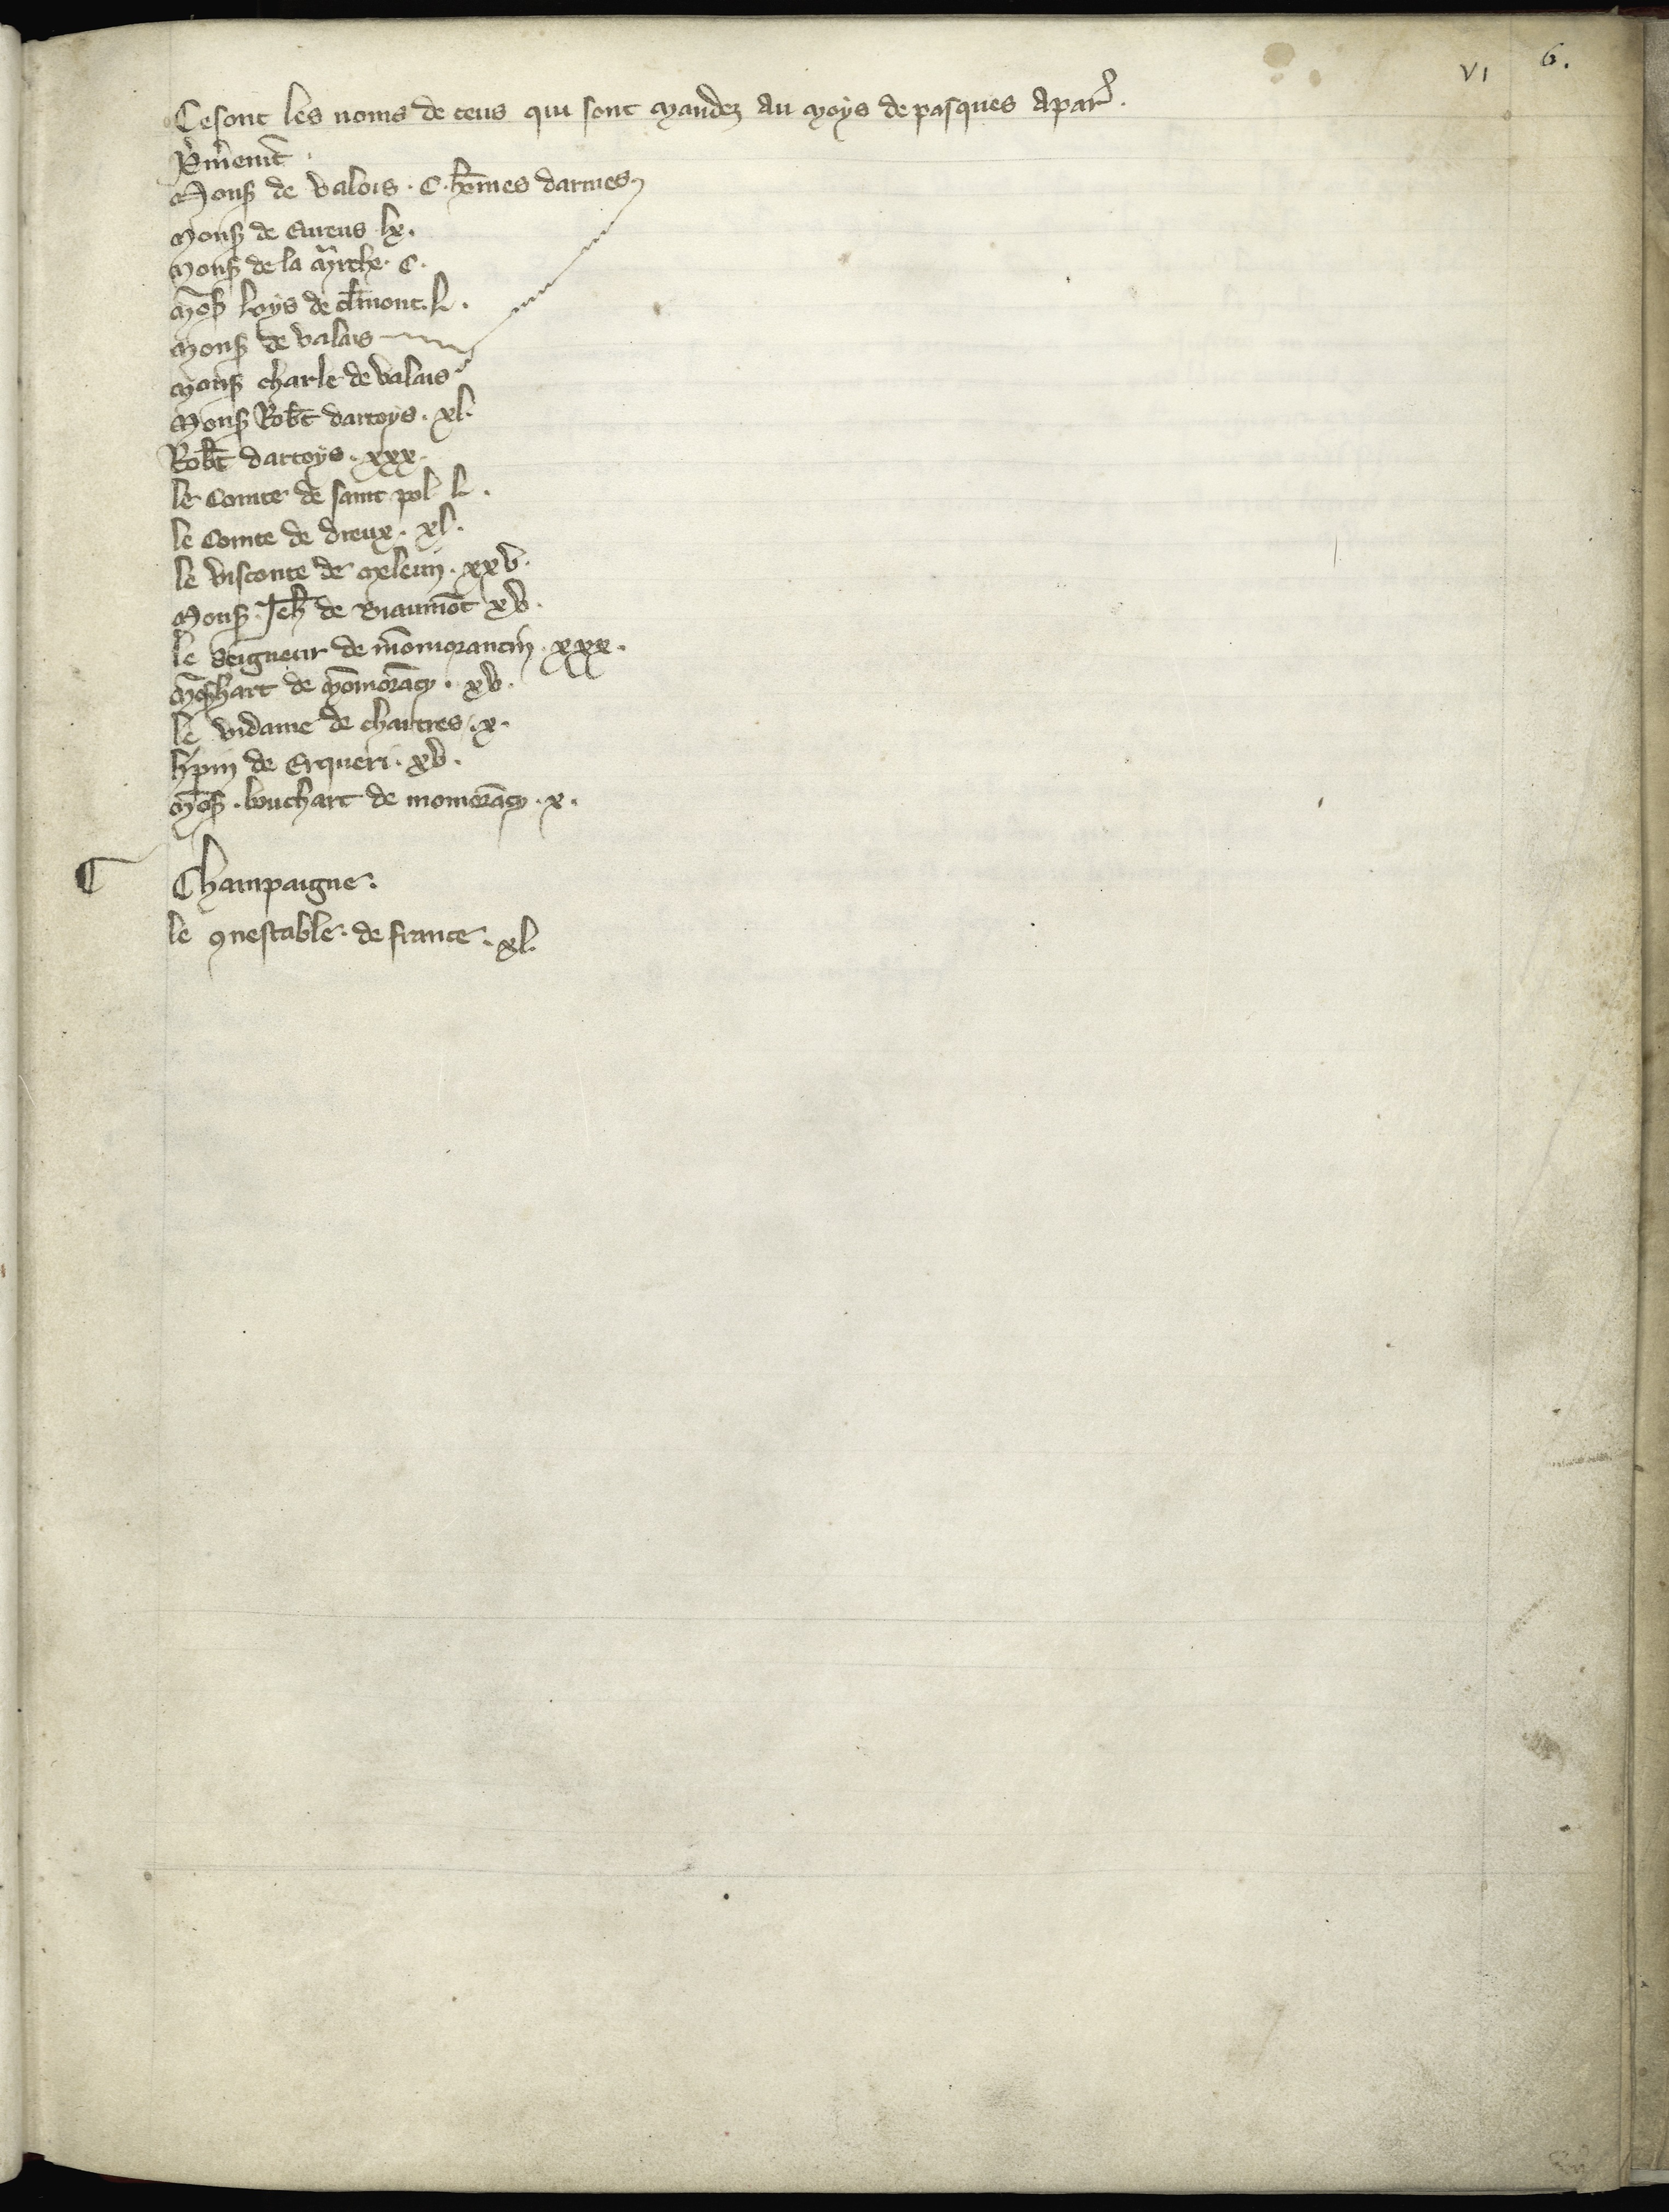 VI 6.
Ce sont les noms de ceus qui sont mandez au moys de pasques a par̾.
P̾m̾em̄t.
Monſ̾ de valois . C . hōmes darmes
Monſ̾ de eureus lx.
Monſ̾ de la m̾rche . C .
mōſ̾ loys de cl̾mont . l .
Monſ̾ de valais
Monſ̾ charle de valais
Monſ̾ Rob̾t dartoys . xl.
Rob̾t dartoys . xxx.
le Comte de saint pol l .
le Comte de dreux . xl .
le visconte de meleun . xxv .
Monſ̾ . Jeh̄ de Biaumōt xv .
le seigneur de mōmorancin . xxx .
de mōmorācy . xv .
le vidame de chartres . x .
h̾pin de Erqueri . xv .
mōſ̾ . bouchart de momorācy . x .
Champaigne .
le ꝯnestable . de france . xl .